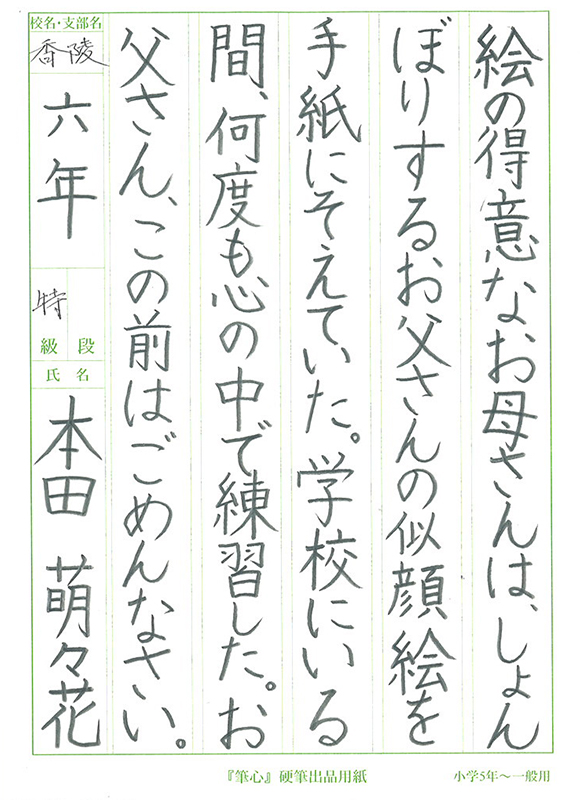 絵の得意なお母さんは、しょん
ぼりするお父さんの似顔絵を
手紙にそえていた。学校にいる
間、何度も心の中で練習した。お
父さん、この前はごめんなさい。
校名・支部名
香陵
六年
特
級 段
氏 名
本田 萌々花
『筆心』硬筆出品用紙
小学5年～一般用